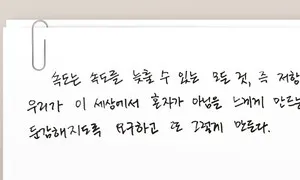 속도는 속도를 늦출 수 있는 모든 것, 즉 저항
우리가 이 세상에서 혼자가 아님을 느끼게 만드는
둔감해지도록 요구하고 또 그렇게 만든다.